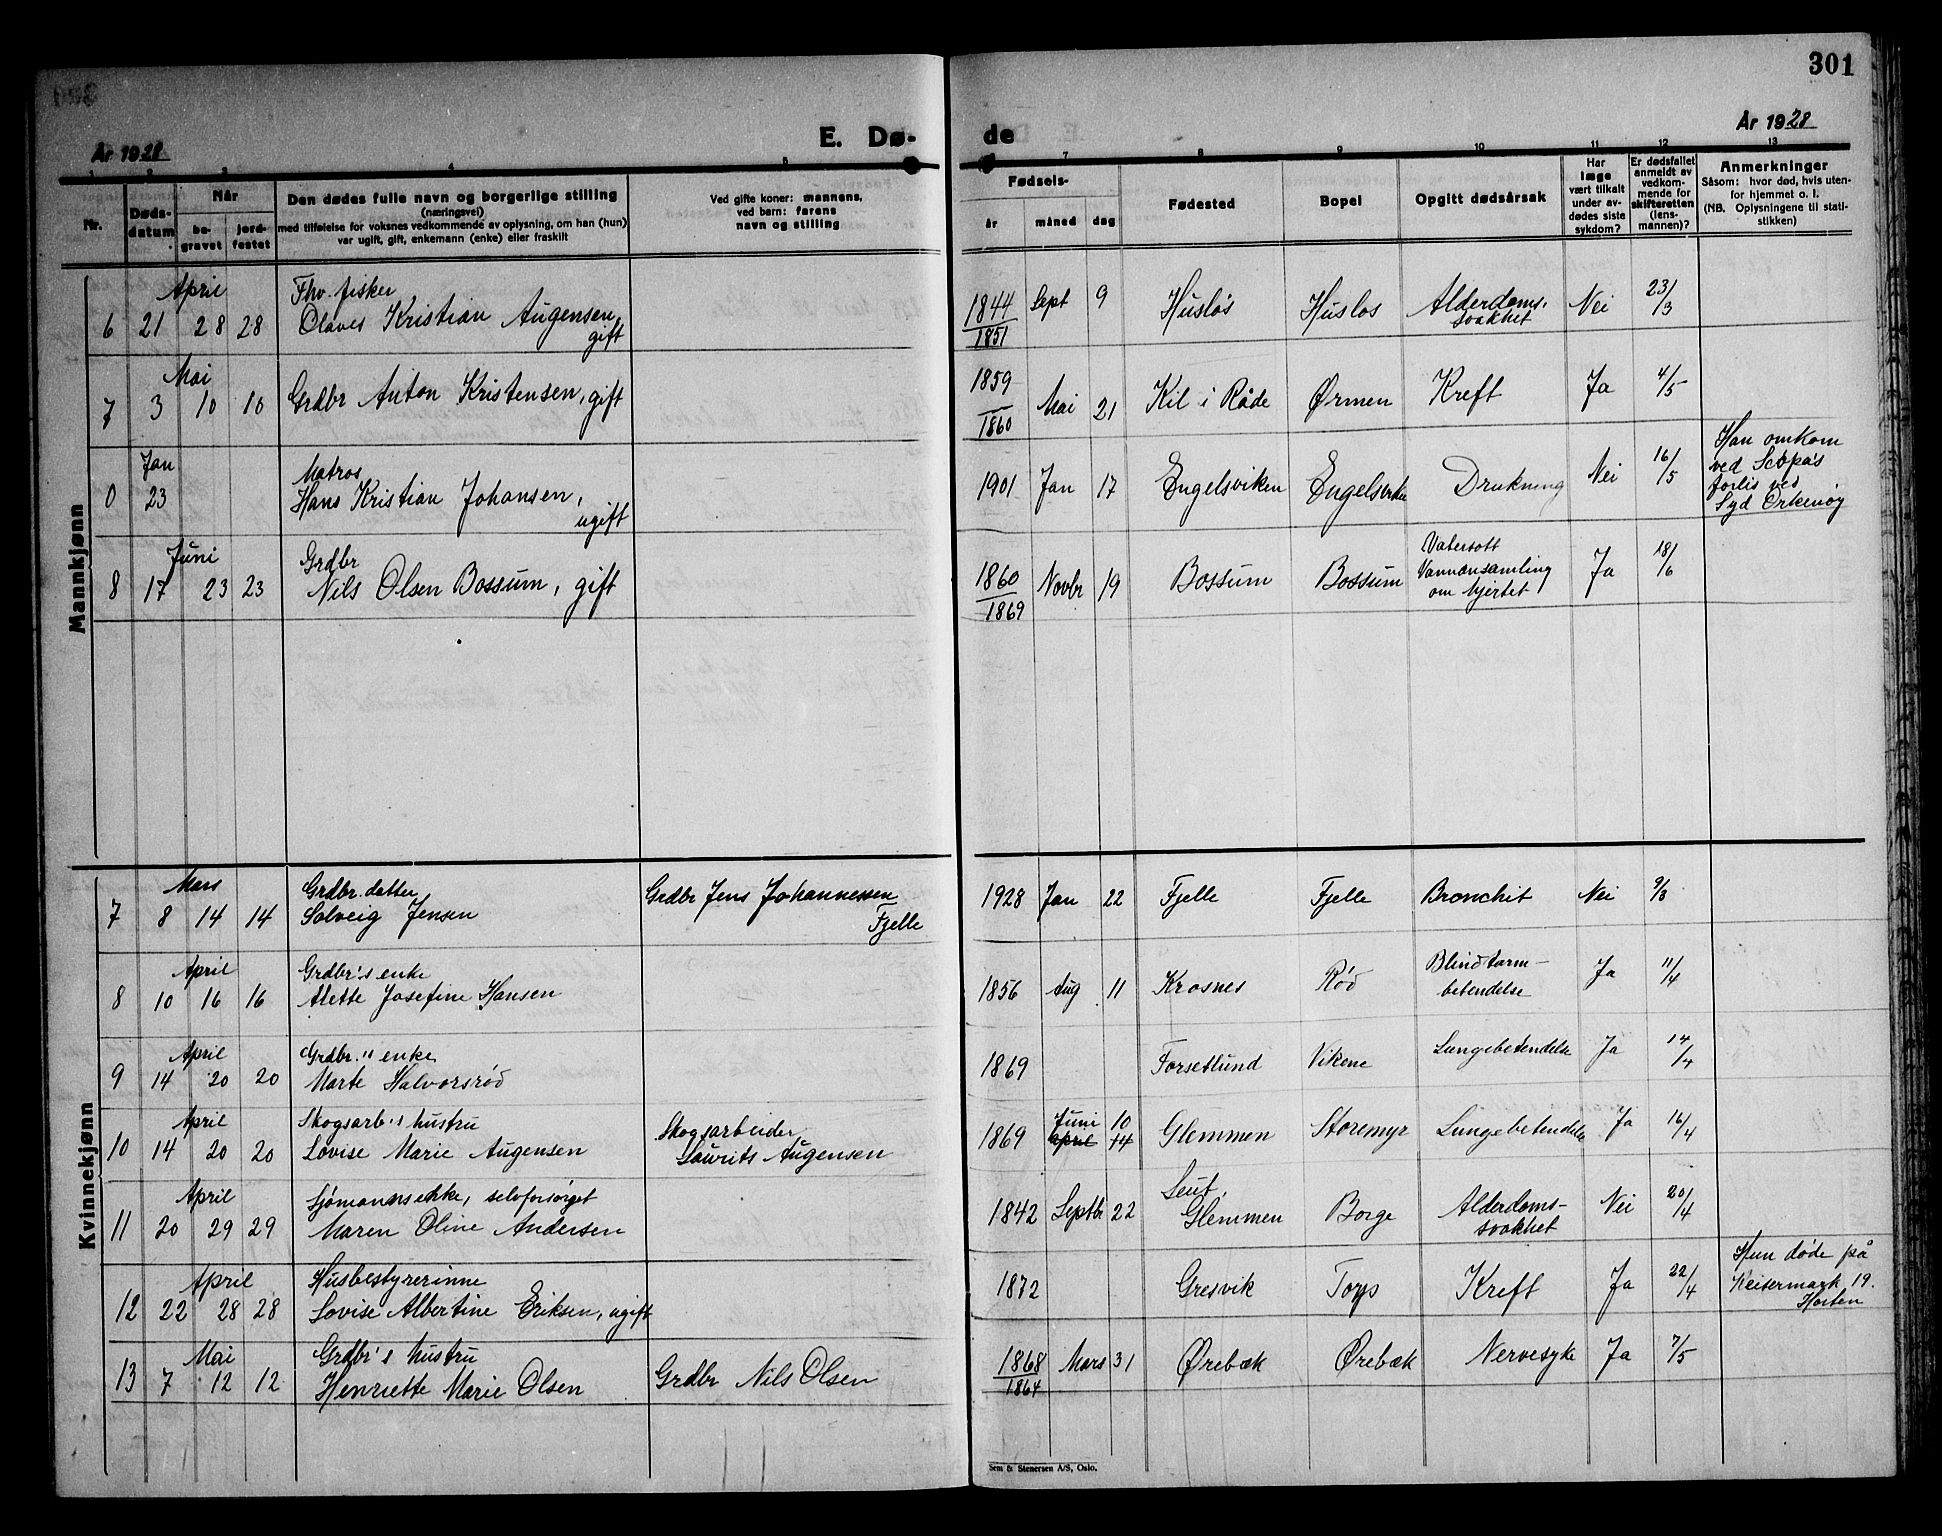 301
År 1928
E. Dø-
de
År 1928
1 2 3 4 5 7 8 9 10 11 12 13
Nr.
Døds-
datum
Når
be-
gravet
jord-
festet
Den dødes fulle navn og borgerlige stilling
(næringsvei)
med tilføielse for voksnes vedkommende av oplysning, om han (hun)
var ugift, gift, enkemann (enke) eller fraskilt
Ved gifte koner: mannens,
ved barn: farens
navn og stilling
Fødsels-
år måned dag
Fødested
Bopel
Opgitt dødsårsak
Har
læge
vært tilkalt
under av-
dødes siste
sykdom?
Er dødsfallet
anmeldt av
vedkom-
mende for
skifteretten
(lens-
mannen)?
Anmerkninger
Såsom: hvor død, hvis uten-
for hjemmet o. l.
(NB. Oplysningene til stati-
stikken)
Mannkjønn
April Fhv. fisker
6 21 28 28 Olaves Kristian Augensen, gift 1844 Sept 9 Husløs Husløs Alderdoms- Nei 23/3
1851 svakhet
Mai
7 3 10 10 Grdbr Anton Kristensen, gift 1859 Mai 21 Kil i Råde Ørmen Kreft Ja 4/5
1860
Jan Matros
0 23 Hans Kristian Johansen, ugift 1901 Jan 17 Engelsviken Engelsviken Drukning Nei 16/5 Han omkom
ved Scopa's
forlis ved
Syd Orkenøy
Juni Grdbr
8 17 23 23 Nils Olsen Bossum, gift 1860 Novbr 19 Bossum Bossum Vatersott Ja 18/6
1869 Vannansamling
om hjertet
Kvinnekjønn
Mars Grdbr datter
7 8 14 14 Solveig Jensen Grdbr Jens Johannessen 1928 Jan 22 Fjelle Fjelle Bronchit Nei 9/3
Fjelle
April Grdbr's enke
8 10 16 16 Alette Josefine Hansen 1856 Aug 11 Krosnes Rød Blindtarm- Ja 11/4
betendelse
April Grdbr." enke
9 14 20 20 Marte Halvorsrød 1869 Forsetlund Vikene Lungebetendelse Ja 14/4
April Skogsarb's hustru Skogsarbeider Juni 10
10 14 20 20 Lovise Marie Augensen Laurits Augensen 1869 april 14 Glemmen Storemyr Lungebetendelse Ja 16/4
April Sjømannsenke, selvforsørget Leut,
11 20 29 29 Maren Oline Andersen 1842 Septbr 22 Glemmen Borge Alderdoms- Nei 20/4
svakhet
April Husbestyrerinne
12 22 28 28 Lovise Albertine Eriksen, ugift 1872 Gresvik Torp Kreft Ja 22/4 Hun døde på
Keisermark 19.
Horten
Mai Grdbr's hustru
13 7 12 12 Henriette Marie Olsen Grdbr Nils Olsen 1868 Mars 31 Ørebæk Ørebæk Nervesyke Ja 7/5
1864
Sem & Stenersen A/S, Oslo.